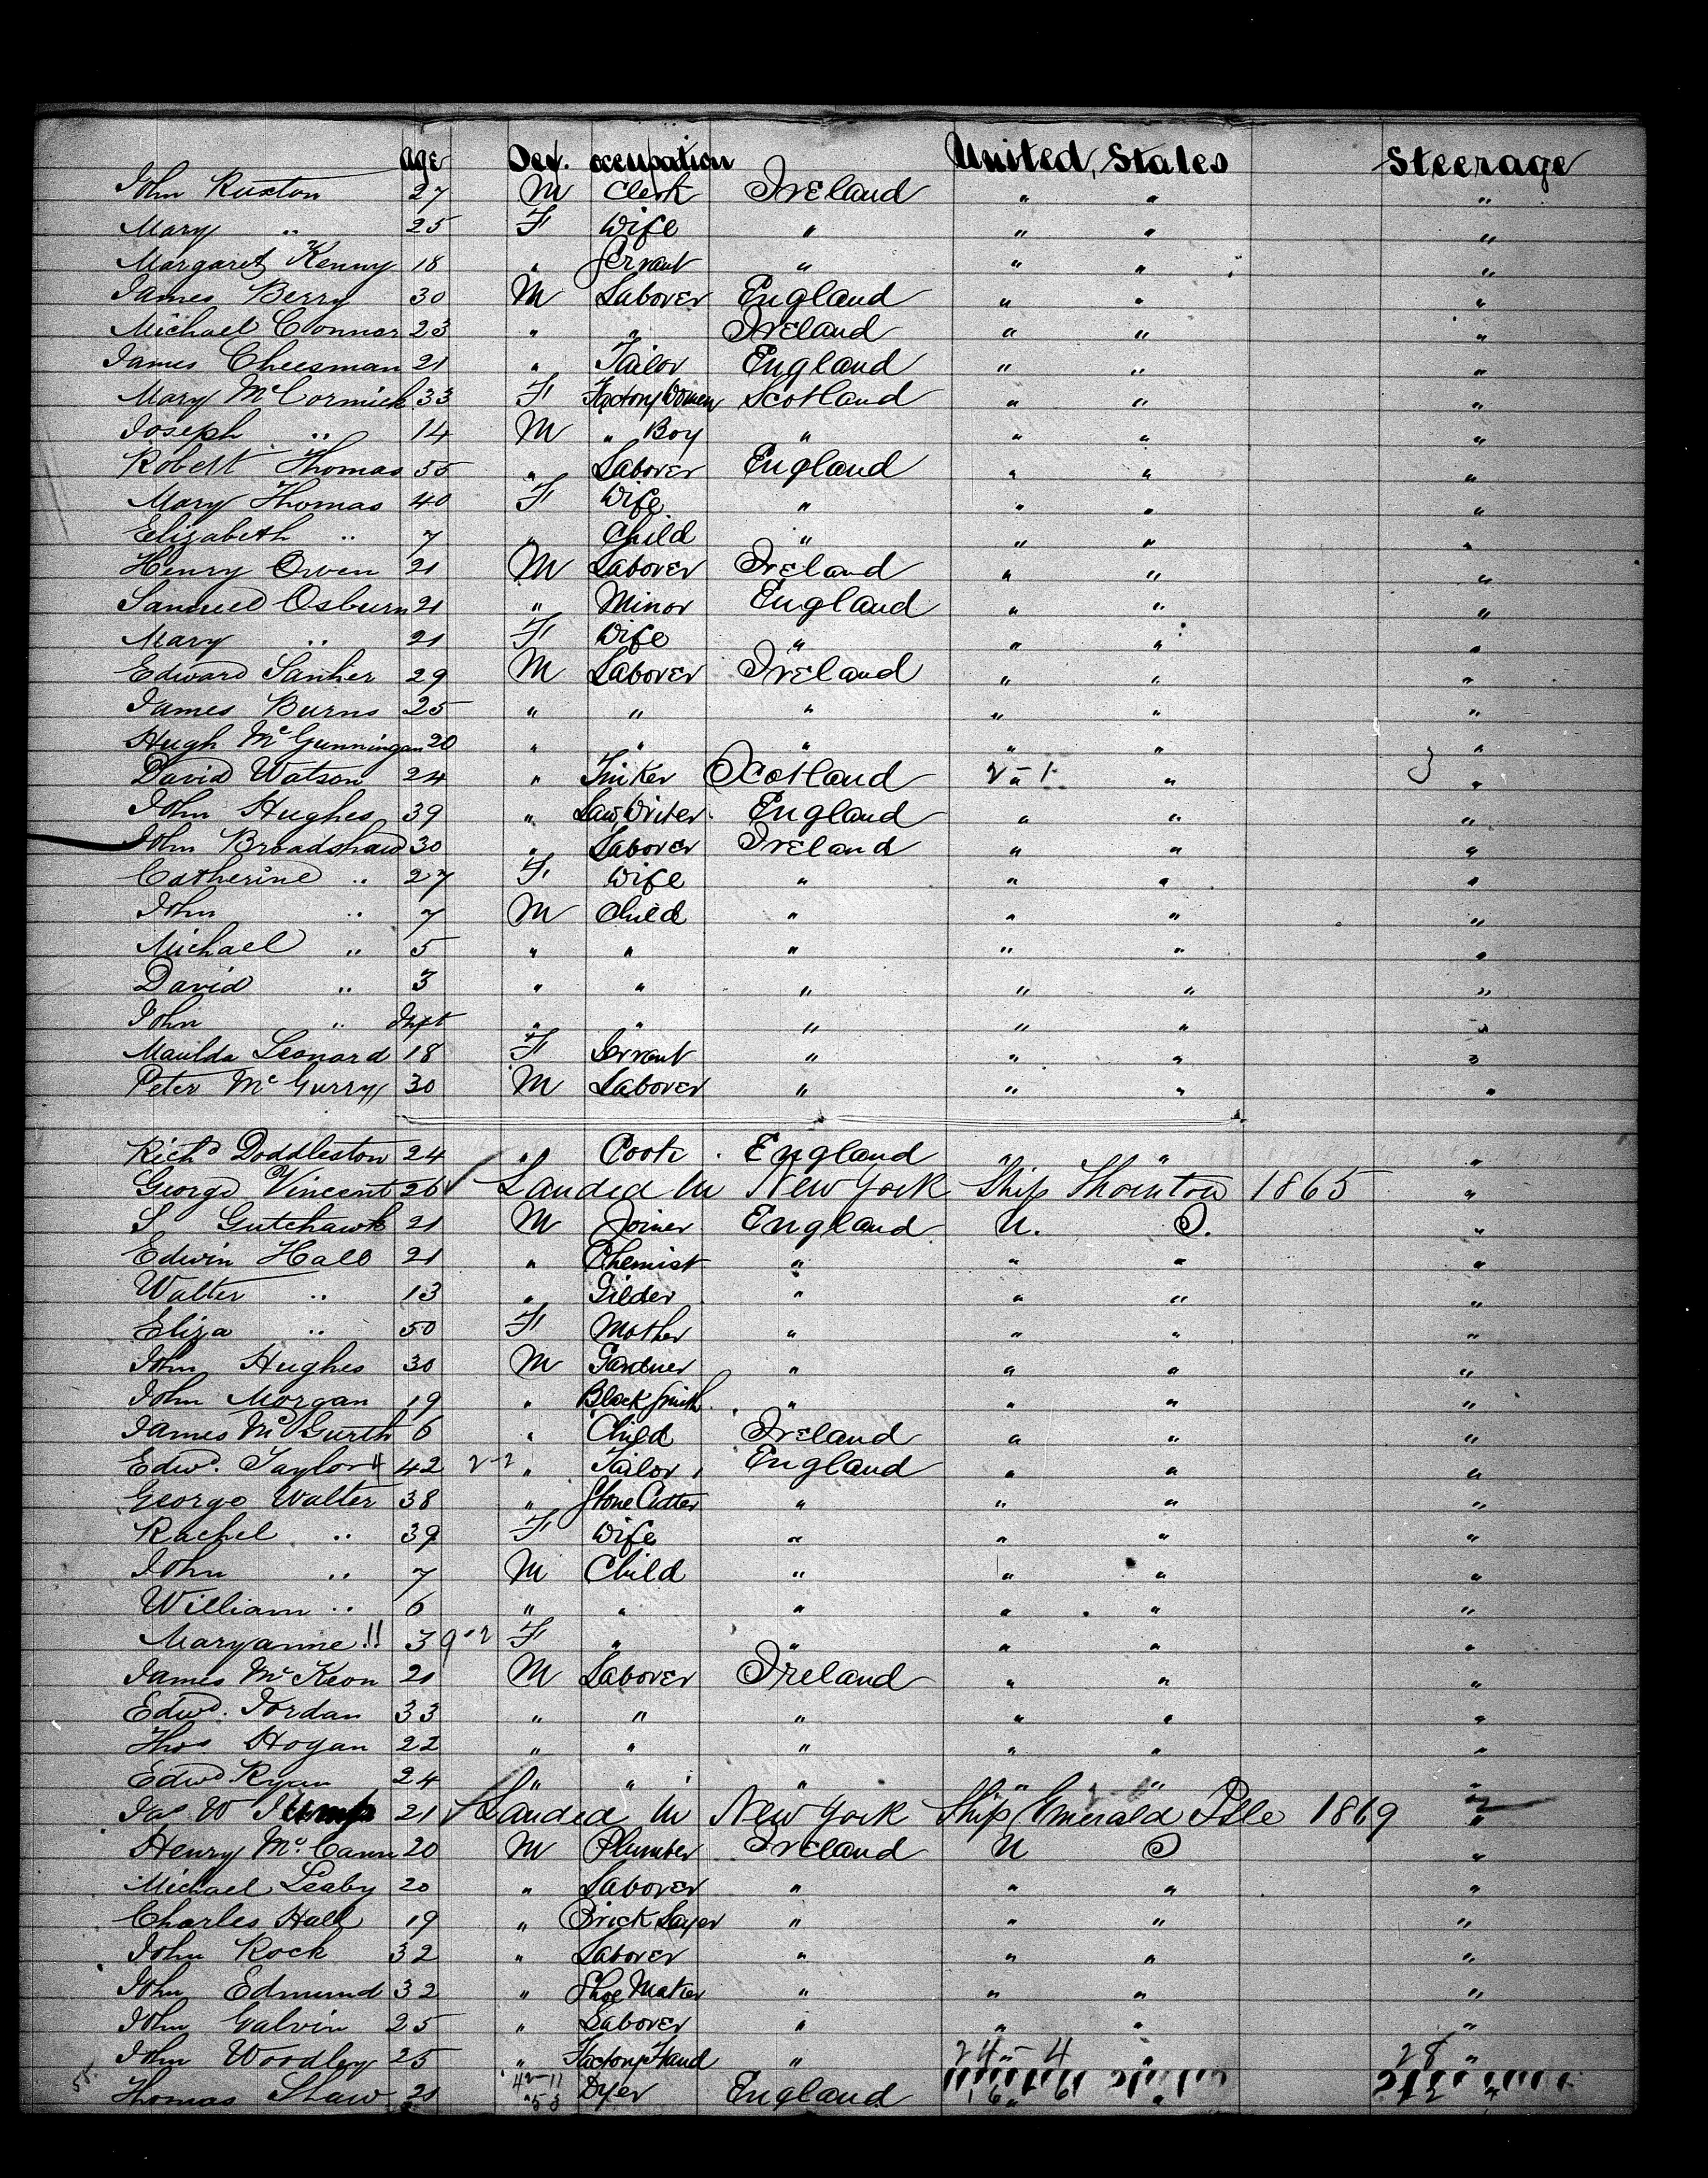 age Sex. occupation United States Steerage
John Ruxton 27 M Clerk Ireland " " "
Mary " 25 F Wife " " " "
Margaret Kenny 18 " Servant " " " "
James Berry 30 M Laborer England " " "
Michael Connor 23 " " Ireland " " "
James Cheesman 21 " Tailor England " " "
Mary McCormick 33 F Factory Women Scotland " " "
Joseph " 14 M " Boy " " " "
Robert Thomas 55 " Laborer England " " "
Mary Thomas 40 F Wife " " " "
Elizabeth " 7 " Child " " " "
Henry Owen 21 M Laborer Ireland " " "
Samued Osburn 21 " Minor England " " "
Mary " 21 F Wife " " " "
Edward 29 M Laborer Ireland " " "
James Burns 25 " " " " " "
Hugh McGunningan 20 " " " " " "
David Watson 24 " Tinker Scotland 2-1 " 3 "
John Hughes 39 " Law Writer England " " "
John Broadshaw 30 " Laborer Ireland " " "
Catherine " 27 F Wife " " " "
John " 7 M Child " " " "
Michael " 5 " " " " " "
David " 3 " " " " " "
John " Inft " " " " " "
Maulda Leonard 18 F Servant " " " "
Peter McGurry 30 M Laborer " " " "
Richd Doddleston 24 " Cook England " " "
George Vincent 26 Landed In New York Ship Thornton 1865 "
S Gutchawk 21 M Joiner England U. S. "
Edwin Hall 21 " Chemist " " " "
Walter " 13 " Gilder " " " "
Eliza " 50 F Mother " " " "
John Hughes 30 M Gardner " " " "
John Morgan 19 " Black Smith " " " "
James McGurth 6 " Child Ireland " " "
Edwd. Taylor 4 42 2-2 " Tailor England " " "
George Walter 38 " Stone Cutter " " " "
Rachel " 39 F Wife " " " "
John " 7 M Child " " " "
William " 6 " " " " " "
Maryanne " 3 9-2 F " " " " "
James McKeon 21 M Laborer Ireland " " "
Edwd. Jordan 33 " " " " " "
Thos Hogan 22 " " " " " "
Edwd Ryan 24 " " " " " "
Jas W 21 Landed In New York Ship Emerald Isle 1869 "
Henry McCann 20 M Plumber Ireland U S "
Michael Leahy 20 " Laborer " " " "
Charles Hall 19 " Brick Layer " " " "
John Rock 32 " Laborer " " " "
John Edmund 32 " Shoe Maker " " " "
John Galvin 25 " Laborer " " " "
John Woodley 25 " Factory Hand " 24-4 " 28 "
58. Thomas Shaw 20 42-11 53 Dyer England 16 " "